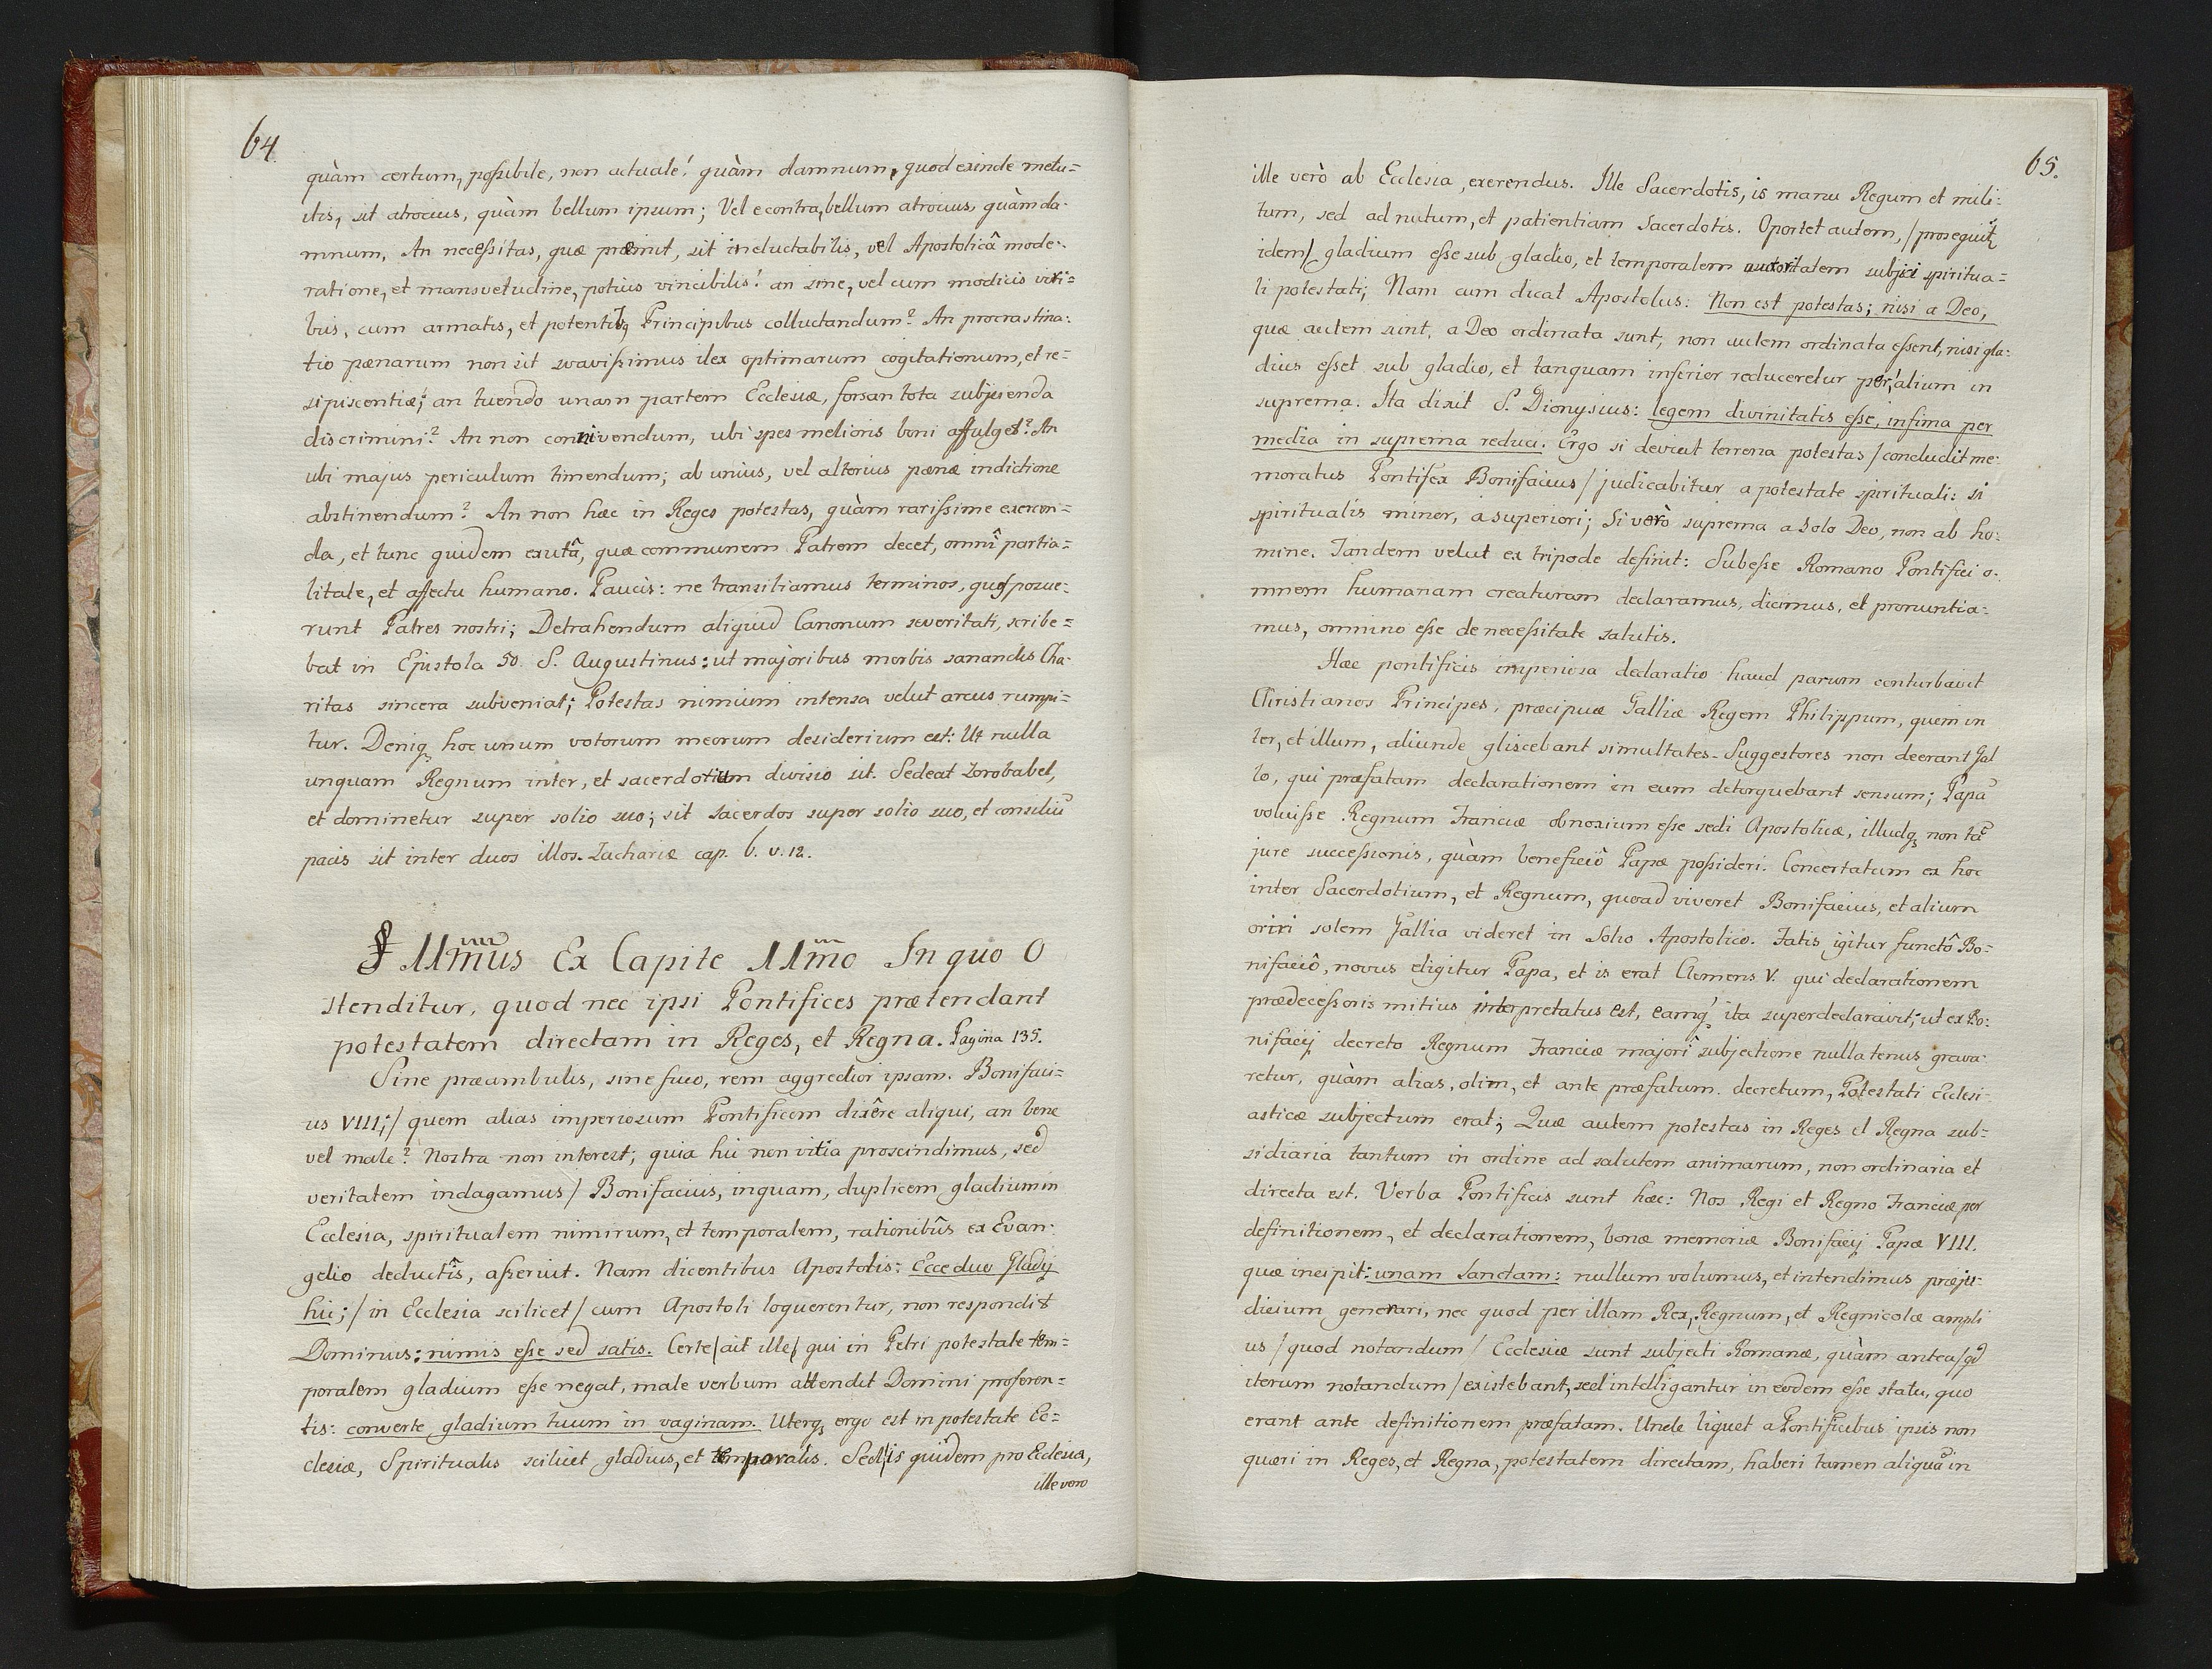 64.
quàm certum, possibile, non actuale! quàm damnum, quod exinde metu=
itis, sit atrocius, quàm bellum ipsum; Vel e contra, bellum atrocius, quàm da-
mnum. An necessitas, quæ præmit, sit ineluctabilis, vel Apostolicâ mode-
ratione, et mansvetudine, potius vincibilis! an sine, vel cum modicis viri=
bus, cum armatis, et potentibq Principibus colluctandum? An procrastina-
tio pænarum non sit suavissimus ilex optimarum cogitationum, et re=
sipiscentiæ; an tuendo unam partem Ecclesiæ, forsan tota subjicienda
discrimini? An non connivendum, ubi spes melioris boni affulget? An
ubi majus periculum timendum; ab unius, vel alterius pænæ indictione
abstinendum? An non hæc in Reges potestas, quàm rarissime exercen=
da, et tunc quidem exutâ, quæ communem Patrem decet, omnî partia=
litate, et affectu humano. Paucis: ne transiliamus terminos, quos posue-
runt Patres nostri; Detrahendum aliquid Canonum severitati, scribe=
bat in Epistola 50. S. Augustinus: ut majoribus morbis sanandis Cha-
ritas sincera subveniat; Potestas nimium intensa velut arcus rumpi=
tur. Deniq hoc unum votorum meorum desiderium est: Ut nulla
unquam Regnum inter, et sacerdotium divisio sit. Sedeat Zorobabel,
et dominetur super solio suo; sit sacerdos super solio suo, et consiliũ
pacis sit inter duos illos. Zachariæ cap. 6. v. 12.
§ 11mus Ex Capite 11mo In quo O
stenditur, quod nec ipsi Pontifices prætendant
potestatem directam in Reges, et Regna. Pagina 135.
Sine præambulis, sine fuco, rem aggredior ipsam. Bonifaci=
us VIII; / quem alias imperiosum Pontificem dixêre aliqui, an bene
vel male? Nostra non interest; quia hii non vitia proscindimus, sed
veritatem indagamus / Bonifacius, inquam, duplicem gladium in
Ecclesia, spiritualem nimirum, et temporalem, rationibûs ex Evan-
gelio deductîs, asseruit. Nam dicentibus Apostolis: Ecce duo Gladij
hii; / in Ecclesia scilicet / cum Apostoli loquerentur, non respondit
Dominus: nimis esse sed satis. Certe / ait ille / qui in Petri potestate tem=
poralem gladium esse negat, male verbum attendit Domini proferen=
tis: converte gladium tuum in vaginam. Uterq ergo est in potestate Ec=
clesiæ, Spiritualis scilicet gladius, et temporalis. Sed is quidem pro Ecclesia,
ille vero
65.
ille verò ab Ecclesia, exerendus. Ille Sacerdotis, is manu Regum et mili-
tum, sed ad nutum, et patientiam Sacerdotis. Oportet autem, / prosequit
idem / gladium esse sub gladio, et temporalem autoritatem subjici spiritua=
li potestati; Nam cum dicat Apostolus: Non est potestas; nisi a Deo,
quæ autem sunt, a Deo ordinata sunt, non autem ordinata essent, nisi gla-
dius esset sub gladio, et tanquam inferior reduceretur per alium in
suprema. Ita dixit S. Dionysius: legem divinitatis esse, infima per
media in suprema reduci. Ergo si deviat terrena potestas / concludit me-
moratus Pontifex Bonifacius / judicabitur a potestate spirituali: si
spiritualis minor, a superiori; Si verò suprema a solo Deo, non ab ho-
mine. Tandem velut ex tripode definit: Subesse Romano Pontifici o-
mnem humanam creaturam declaramus, dicimus, et pronuntia-
mus, omnino esse de necessitate salutis.
Hæc pontificis imperiosa declaratio haud parum conturbavit
Christianos Principes, præcipuæ Galliæ Regem Philippum, quem in
ter, et illum, aliunde gliscebant simultates. Suggestores non deerant Gal
lo, qui præfatam declarationem in eum detorquebant sensum; Papã
voluisse Regnum Franciæ obnoxium esse sedi Apostolicæ, illudq non tã
jure successionis, quàm beneficiô Papæ possideri. Concertatum ex hoc
inter Sacerdotium, et Regnum, quoad viveret Bonifacius, et alium
oriri solem Gallia videret in Solio Apostolico. Fatis igitur functô Bo-
nifaciô, novus eligitur Papa, et is erat Clemens V. qui declarationem
prædecessoris mitius interpretatus est, eamq ita superdeclaravit; ut ex Bo-
nifacij decreto Regnum Franciæ majorî subjectione nullatenus grava-
retur, quàm alias, olim, et ante præfatum decretum, Potestati Ecclesi-
asticæ subjectum erat; Quæ autem potestas in Reges et Regna sub-
sidiaria tantum in ordine ad salutem animarum, non ordinaria et
directa est. Verba Pontificis sunt hæc: Nos Regi et Regno Franciæ per
definitionem, et declarationem, bonæ memoriæ Bonifacij Papæ VIII.
quæ incipit: unam Sanctam: nullum volumus, et intendimus præju-
dicium generari, nec quod per illam Rex, Regnum, et Regnicolæ ampli
us / quod notandum / Ecclesiæ sunt subjecti Romanæ, quàm antea / qd
iterum notandum / existebant, sed intelligantur in eodem esse statu, quo
erant ante definitionem præfatam. Unde liquet a Pontificibus ipsis non
quæri in Reges, et Regna, potestatem directam, haberi tamen aliquã in